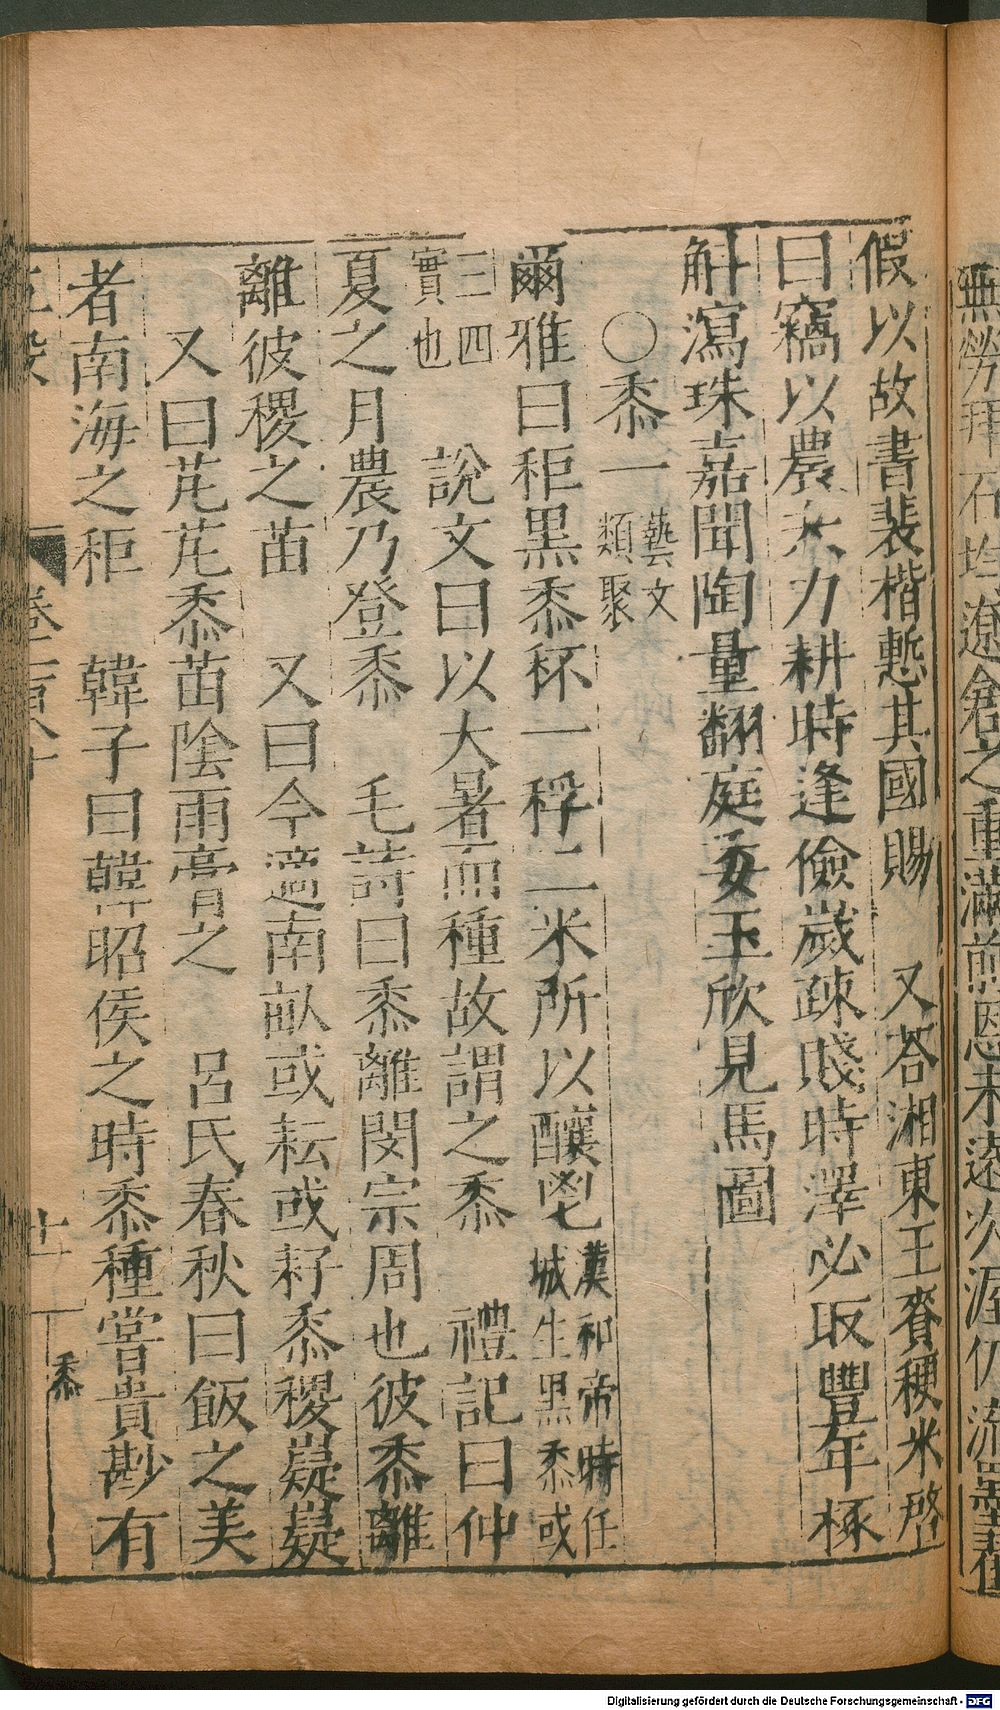 無勞拜石均遼倉之重滿煎恩未遠次渥仍流墨翟
假以故書裴楷慙其國賜　又荅湘東王賚稉米啓
曰竊以農夫力耕時逢儉歲疎賤時澤必取豐年㭬
斛瀉珠嘉聞陶量翻庭委玉欣見馬圖
○黍一藝文類聚
爾雅曰秬黑黍秠一稃二米所以釀鬯漢和帝時任城生黑黍或
三四實也　說文曰以大暑而種故謂之黍　禮記曰仲
夏之月農乃登黍　毛詩曰黍離閔宗周也彼黍離
離彼稷之苗　又曰今適南畝或耘或耔黍稷嶷嶷
又曰芃芃黍苗陰雨膏之　呂氏春秋曰飯之美
者南海之秬　韓子曰韓昭侯之時黍種嘗貴尠有
卷二百八十
十一
黍
Digitalisierung gefördert durch die Deutsche Forschungsgemeinschaft - DFG